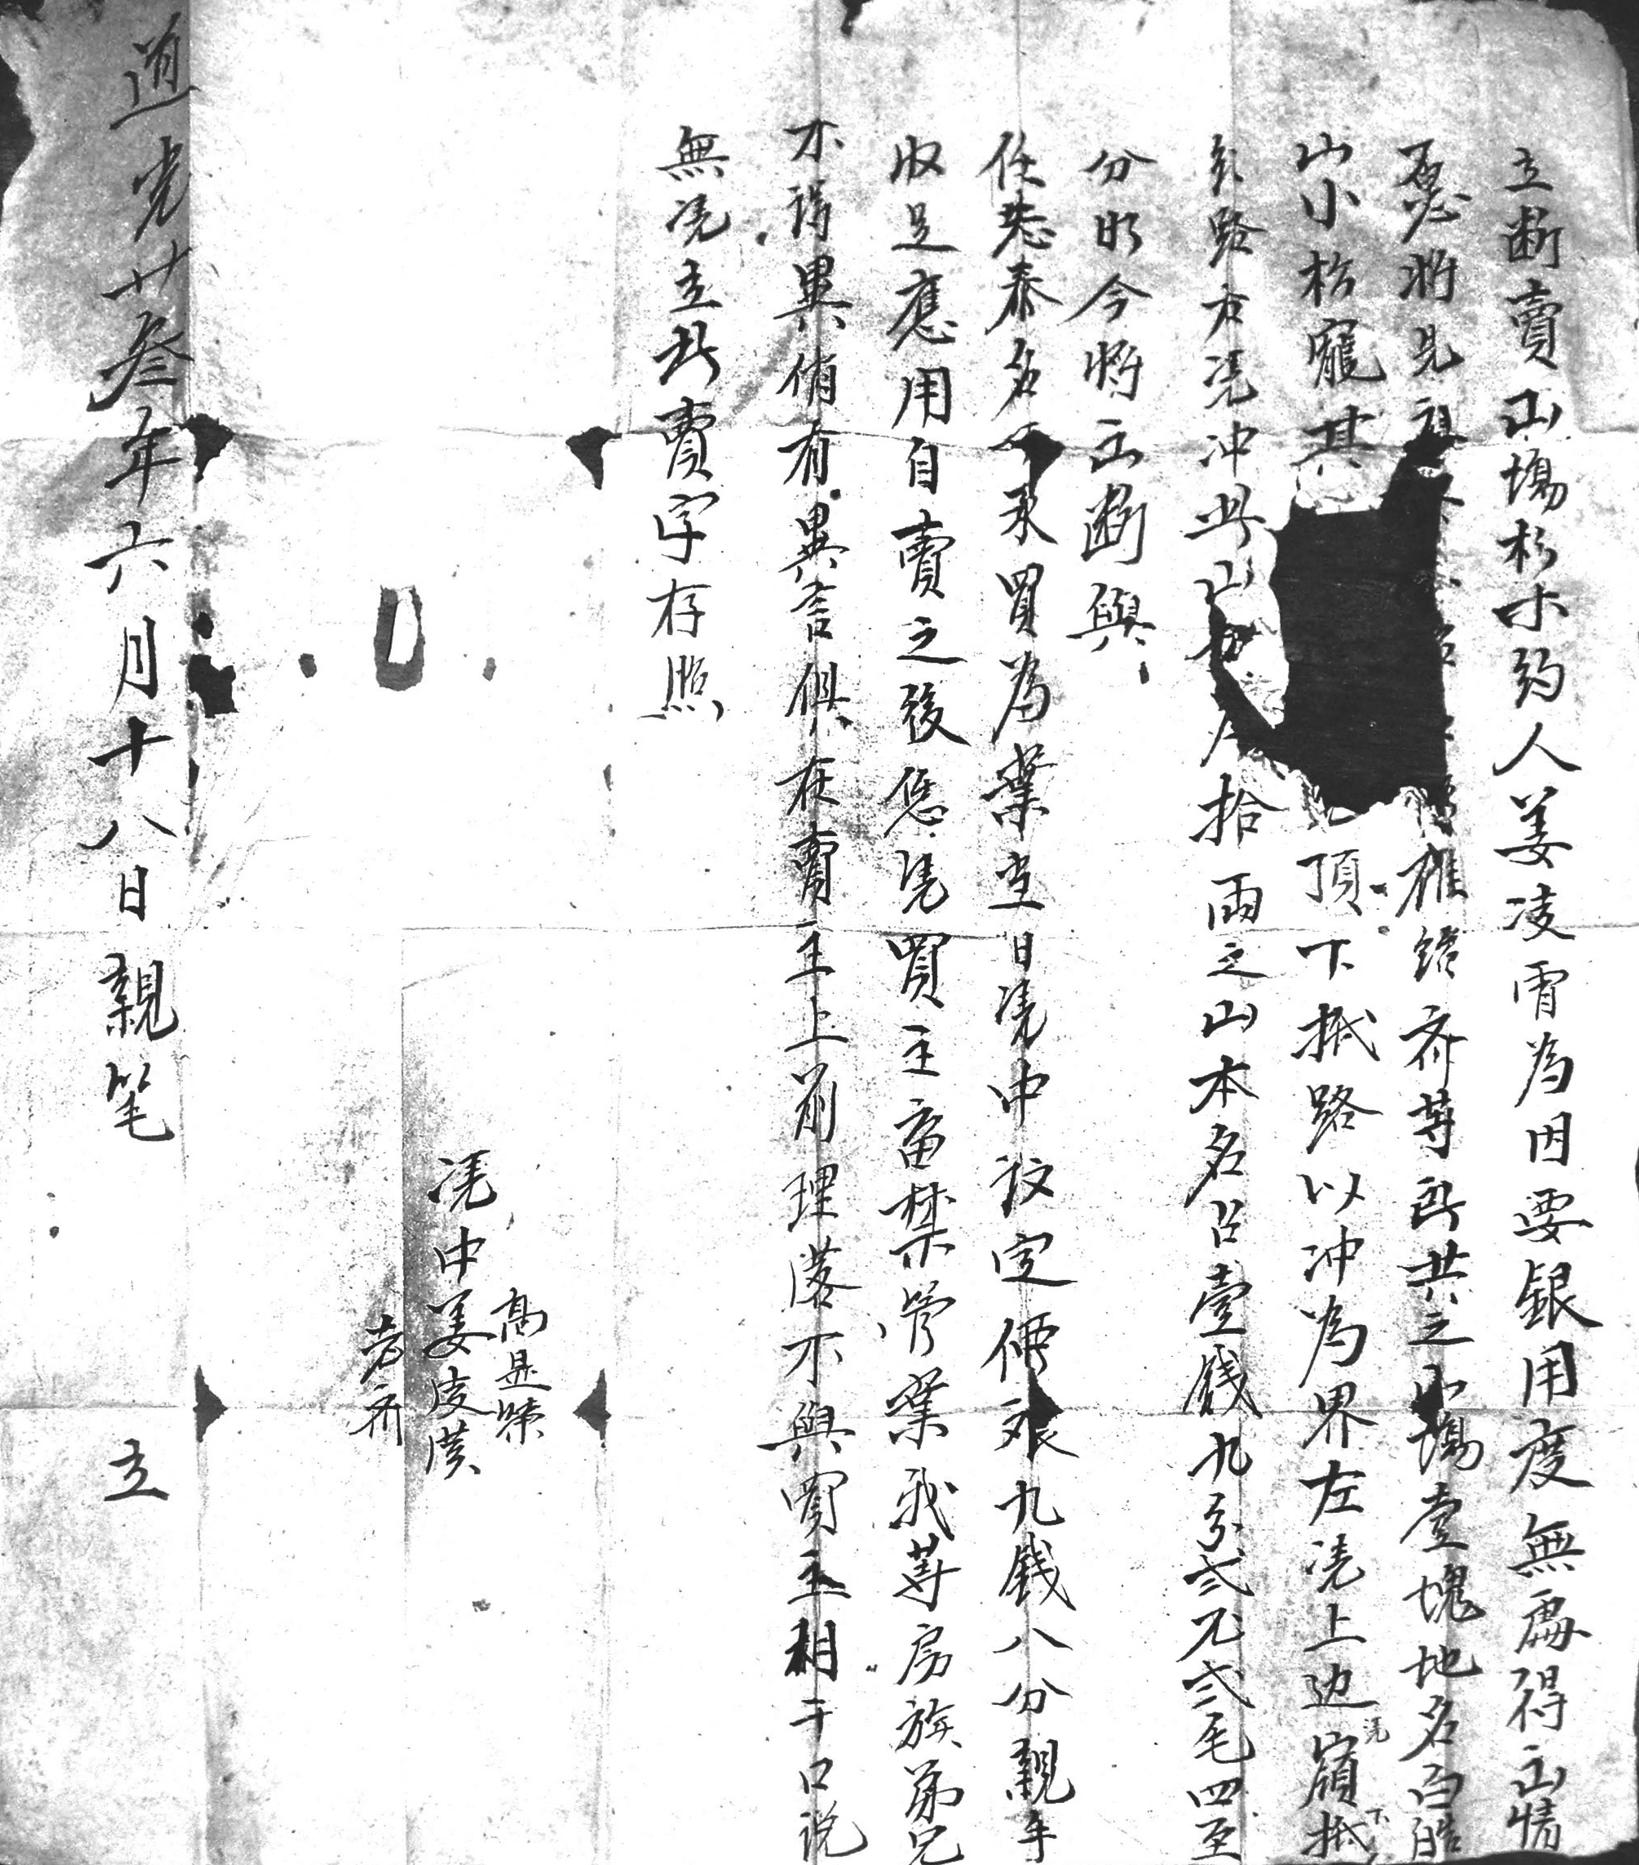 立断賣山塲杉木約人姜凌霄為因要銀用度無處得出情
愿将先祖雄鈴齐等所共之山塲壹塊地名白皓
山小杉寵其頂下抵路以冲為界左凴上边凴嶺下抵
路右凴冲此山分為拾両之山本名占壹錢九分弍厘弍毛四至
分明今将出断與
任恭泰名下承買為業当日凴中议定價艮九錢八分親手
收足應用自賣之後恁凴買主畜禁管業我等房族弟兄
不得異俏有異言俱在賣主上前理落不與買主相干口说
無凴立此賣字存照
高显榮
凴中姜皮漢
老齐
道光廿叁年六月十八日親笔立